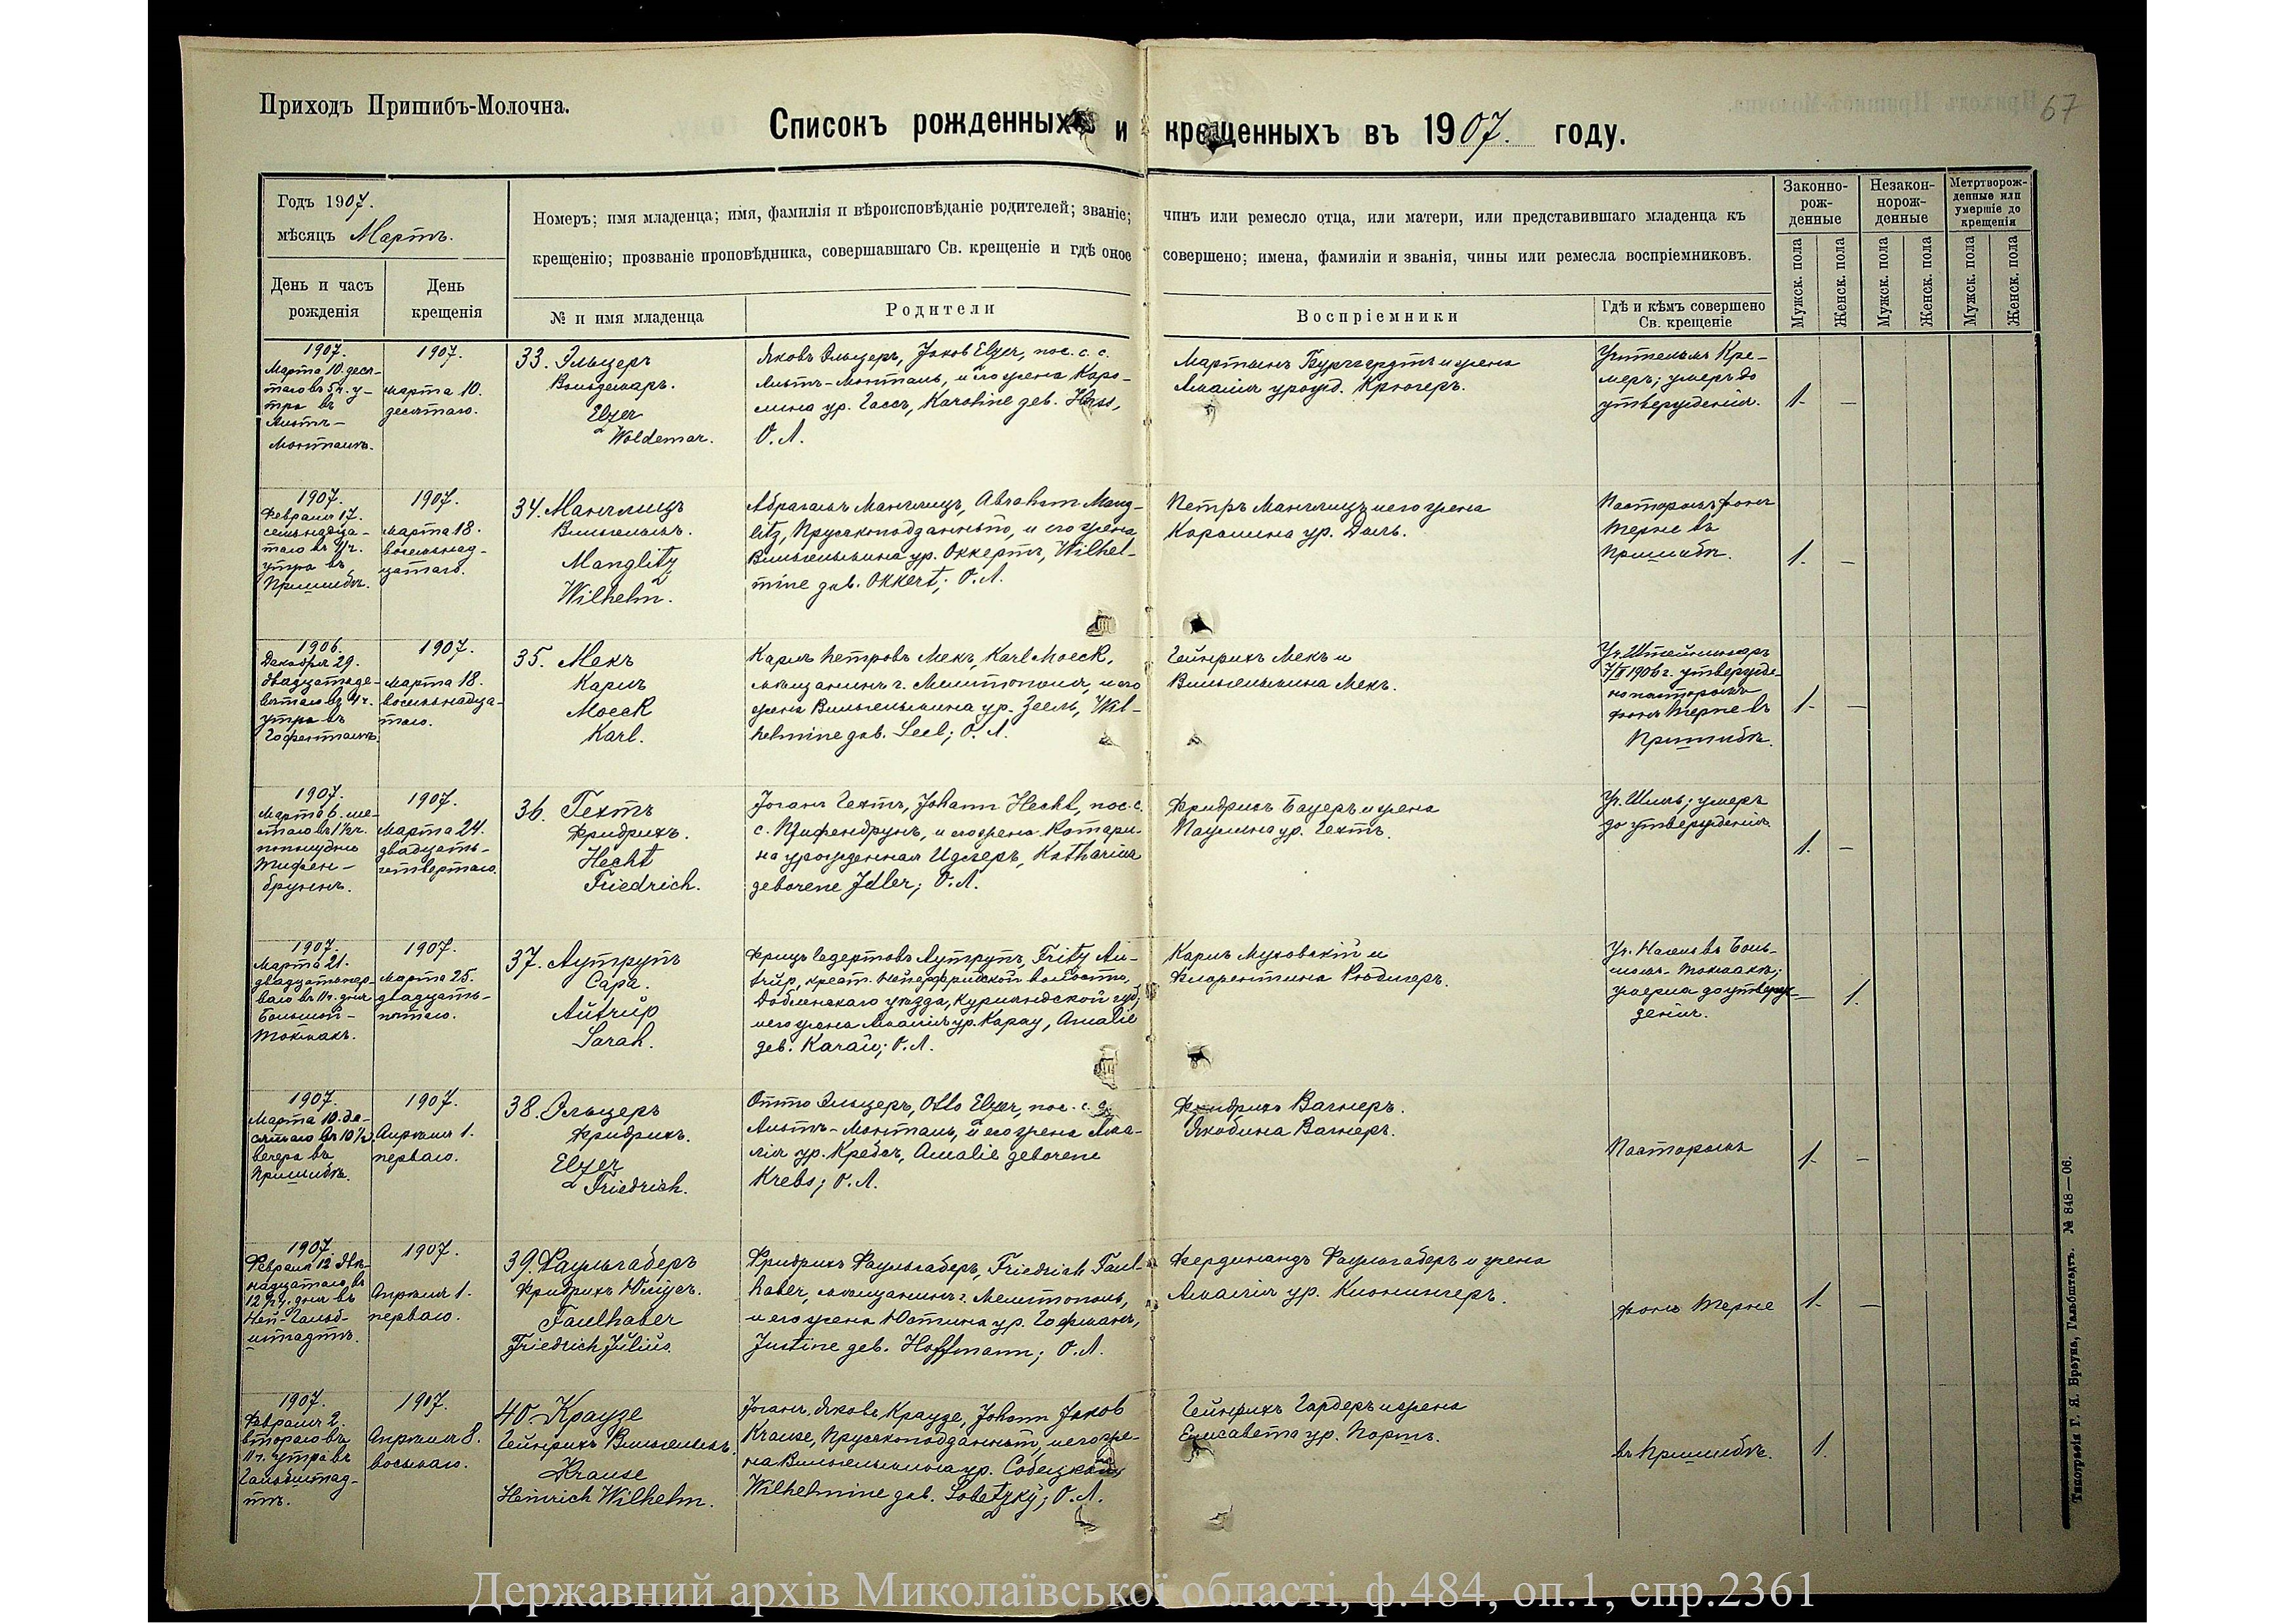 Приходъ Пришибъ-Молочна.
67
Списокъ рожденныхъ и крещенныхъ въ 1907. году.
Годъ 1907.
мѣсяцъ Мартъ.
День и часъ
рожденія
День
крещенія
Номеръ; имя младенца; имя, фамилія и вѣроисповѣданіе родителей; званіе; чинъ или ремесло отца, или матери, или представившаго младенца къ
крещенію; прозваніе проповѣдника, совершавшаго Св. крещеніе и гдѣ оное совершено; имена, фамиліи и званія, чины или ремесла воспріемниковъ.
№ и имя младенца
Родители
Воспріемники
Гдѣ и кѣмъ совершено
Св. крещеніе
Законно-
рож-
денные
Незакон-
норож-
денные
Метртворож-
денные или
умершіе до
крещенія
Мужск. пола
Женск. пола
Мужск. пола
Женск. пола
Мужск. пола
Женск. пола
1907.
Марта 10. деся-
таго въ 5 ч. у-
тра въ
Альтъ-
Монталѣ.
1907.
марта 10.
десятаго.
33. Эльцеръ
Вольдемаръ.
Elzer
Woldemar.
Яковъ Эльцеръ, Jakob Elzer, пос. с. с.
Альтъ-Монталь, и его жена Каро-
лина ур. Гассъ, Karoline geb. Hass,
О. Л.
Мартынъ Бургардтъ и жена
Амалія урожд. Крюгеръ.
Учителемъ Кре-
меръ; умеръ до
утвержденія.
1. –
1907.
Февраля 17.
семнадца-
таго въ ч.
утра въ
Пришибѣ.
1907.
марта 18.
восемнад-
цатаго.
34. Манглицъ
Вильгельмъ.
Manglitz
Wilhelm.
Абрагамъ Манглицъ, Abraham Mang-
litz, Прусскоподданный, и его жена
Вильгельмина ур. Оккертъ, Wilhel-
mine geb. Okkert; О. Л.
Петръ Манглицъ и его жена
Каролина ур. Даль.
Пасторомъ фонъ
Терне въ
Пришибѣ.
1. –
1906.
Декабря 29.
двадцатаде-
вятаго въ 4 ч.
утра въ
Гофенталѣ.
1907.
марта 18.
восемнадца-
таго.
35. Мекъ
Карлъ
Moeck
Karl.
Карлъ Петровъ Мекъ, Karl Moeck,
мѣщанинъ г. Мелитополя, и его
жена Вильгельмина ур. Зеель, Wil-
helmine geb. Seel; О. Л.
Гейнрихъ Мекъ и
Вильгельмина Мекъ.
1906 г. утвержде-
но пасторомъ
фонъ Терне въ
Пришибѣ.
1. –
1907.
Марта 6. ше-
стаго въ 1½ ч.
пополудни
Тифен-
бруннъ.
1907.
Марта 24.
двадцать-
четвертаго.
36. Гехтъ
Фридрихъ.
Hecht
Friedrich.
Іоганъ Гехтъ, Johann Hecht, пос. с.
с. Тифенбрунъ, и его жена Катари-
на урожденная Идлеръ, Katharina
geborene Idler; О. Л.
Фридрихъ Бауеръ и жена
Паулина ур. Гехтъ.
Уч. Шиль; умеръ
до утвержденія.
1. –
1907.
Марта 21.
двадцатьпер-
ваго въ 11 ч. дня
Большой-
Токмакъ.
1907.
Марта 25.
двадцать-
пятаго.
37. Аутрупъ
Сара.
Autrup
Sarah.
Фрицъ Аутрупъ, Fritz Au-
trup, крест. волости,
Добленскаго уѣзда, Курляндской губ.,
и его жена Амалія ур. Карау, Amalie
geb. Karau; О. Л.
Карлъ Муховскій и
Флорентина Рюдигеръ.
Уч. въ Боль-
шомъ-Токмакѣ;
умерла до утверж-
денія.
– 1.
1907.
Марта 10. де-
сятаго въ 10½
вечера въ
Пришибѣ.
1907.
Апрѣля 1.
перваго.
38. Эльцеръ
Фридрихъ.
Elzer
Friedrich.
Отто Эльцеръ, Otto Elzer, пос. с. с.
Альтъ-Монталь, и его жена Ама-
лія ур. Кребсъ, Amalie geborene
Krebs; О. Л.
Фридрихъ Вагнеръ.
Якобина Вагнеръ.
Пасторомъ
1. –
1907.
Февраля 12. двѣ-
надцатаго въ
12 ч. дня въ
Ней-Гальб-
штадтъ.
1907.
Апрѣля 1.
перваго.
39. Фаульгаберъ
Фридрихъ Юліусъ.
Faulhaber
Friedrich Julius.
Фридрихъ Фаульгаберъ, Friedrich Faul-
haber, мѣщанинъ г. Мелитополь,
и его жена Юстина ур. Гофманъ,
Justine geb. Hoffmann; О. Л.
Фердинандъ Фаульгаберъ и жена
Амалія ур. Кионингеръ.
фонъ Терне
1. –
1907.
Февраля 2.
втораго въ
11 ч. утра въ
Гальбштад-
тѣ.
1907.
Апрѣля 8.
восьмаго.
40. Краузе
Гейнрихъ Вильгельмъ.
Krause
Heinrich Wilhelm.
Іоганъ Яковъ Краузе, Johann Jakob
Krause, Прусскоподданный, и его же-
на Вильгельмина ур. Собецкая,
Wilhelmine geb. Sobetzky; О. Л.
Гейнрихъ Гардеръ и жена
Елисавета ур. Портъ.
въ Пришибѣ.
1.
Типографія Г. Я. Брауна, Гальбштадтъ. № 848—06.
Державний архів Миколаївської області, ф.484, оп.1, спр.2361